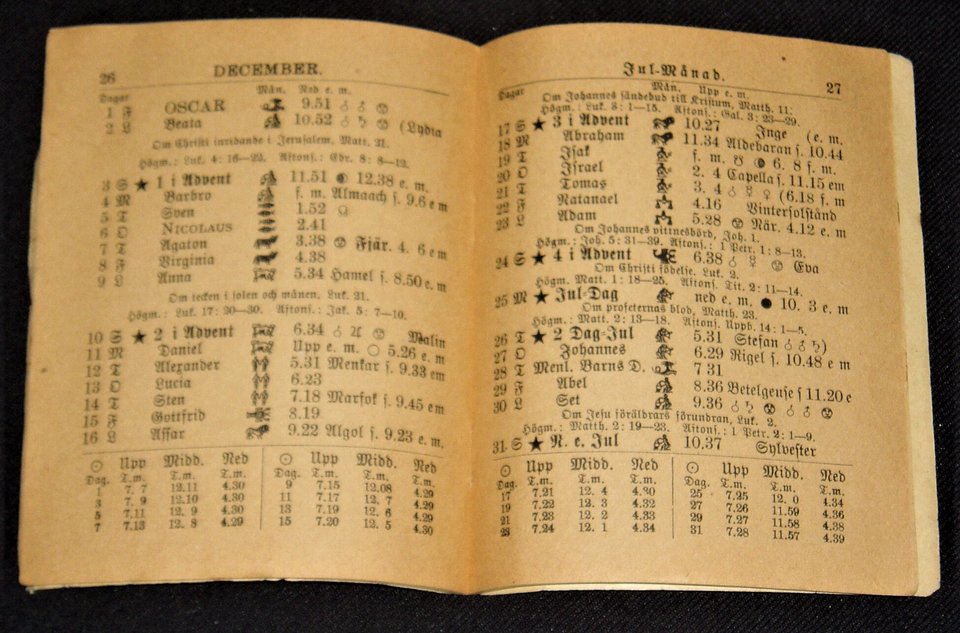 26 DECEMBER.
Dagar Mån. Ned e. m.
1 F OSCAR 9.51
2 L Beata 10.52 (Lydia
Om Christi inridande i Jerusalem, Matt. 21.
Högm.: Luk. 4: 16—22. Aftons.: Ebr. 8: 8—12.
3 S ★ 1 i Advent 11.51 12.38 e. m.
4 M Barbro f. m. Almaach s. 9.6 e m
5 T Sven 1.52
6 O NICOLAUS 2.41
7 T Agaton 3.38 Fjär. 4. 6 e m
8 F Virginia 4.38
9 L Anna 5.34 Hamel s. 8.50 e. m
Om tecken i solen och månen, Luk. 21.
Högm.: Luk. 17: 20—30. Aftons.: Jak. 5: 7—10.
10 S ★ 2 i Advent 6.34 ♂ ♃ Malin
11 M Daniel Upp e. m. ○ 5.26 e. m
12 T Alexander 5.31 Menkar s. 9.33 em
13 O Lucia 6.23
14 T Sten 7.18 Marfok s. 9.45 em
15 F Gottfrid 8.19
16 L Assar 9.22 Algol s. 9.23 e. m.
☉ Upp Midd. Ned ☉ Upp Midd. Ned
Dag. T.m. T.m. T.m. T.m. T.m. T.m.
1 7. 7 12.11 4.30 9 7.15 12.08 4.29
3 7. 9 12.10 4.30 11 7.17 12. 7 4.29
5 7.11 12. 9 4.30 13 7.19 12. 6 4.29
7 7.13 12. 8 4.29 15 7.20 12. 5 4.30
Jul-Månad. 27
Dagar Mån. Upp e. m.
Om Johannes sändebud till Kristum, Matth. 11.
Högm.: Luk. 3: 1—15. Aftons.: Gal. 3: 23—29.
17 S ★ 3 i Advent 10.27 Inge (e. m.
18 M Abraham 11.34 Aldebaran s. 10.44
19 T Isak f. m. 6. 8 f. m.
20 O Israel 2. 4 Capella s. 11.15 em
21 T Tomas 3. 4 (6.18 f. m
22 F Natanael 4.16 Vintersolstånd
23 L Adam 5.28 När. 4.12 e. m
Om Johannes vittnesbörd, Joh. 1.
Högm.: Joh. 5: 31—39. Aftons.: 1 Petr. 1: 8—13.
24 S ★ 4 i Advent 6.38 Eva
Om Christi födelse, Luk. 2.
Högm.: Matt. 1: 18—25. Aftons. Tit. 2: 11—14.
25 M ★ Jul-Dag ned e. m. ● 10. 3 e m
Om profeternas blod, Matth. 23.
Högm.: Matt. 2: 13—18. Aftons. Uppb. 14: 1—5.
26 T ★ 2 Dag-Jul 5.31 Stefan
27 O Johannes 6.29 Rigel s. 10.48 e m
28 T Menl. Barns D. 7 31
29 F Abel 8.36 Betelgeuse s 11.20 e
30 L Set 9.36
Om Jesu föräldrars förundran, Luk. 2.
Högm.: Matth. 2: 19—23. Aftons.: 1 Petr. 2: 1—9.
31 S ★ N. e. Jul 10.37 Sylvester
☉ Upp Midd. Ned ☉ Upp Midd. Ned
Dag. T.m. T.m. T.m. Dag. T.m. T.m. T.m.
17 7.21 12. 4 4.30 25 7.25 12. 0 4.34
19 7.22 12. 3 4.32 27 7.26 11.59 4.36
21 7.23 12. 2 4.33 29 7.27 11.58 4.38
23 7.24 12. 1 4.34 31 7.28 11.57 4.39